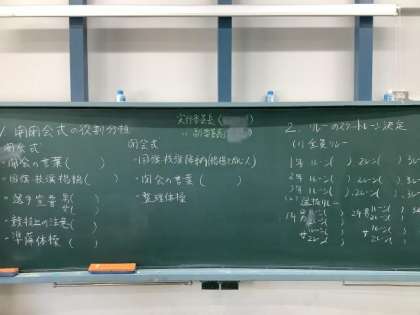 1. 開閉会式の役割分担
実行委員長(
〃 副委員長(
開会式
・開会の言葉(　　)
・国旗校旗掲揚(　　)
・選手宣誓 男( 女(　　)
・競技上の注意(　　)
・準備体操(　　)
閉会式
・国旗校旗降納(掲揚と同じ)
・閉会の言葉(　　)
・整理体操
2. リレーのスタートレーン決定
(1) 全員リレー
1年 1レーン(　　) 2レーン(　　) 3レ
2年 1レーン(　　) 2レーン(　　) 3レ
3年 1レーン(　　) 2レーン(　　) 3レ
(2) 選抜リレー
1年男 1レーン( 2年男 1レーン(
2レーン( 2レーン(
女 1レーン( 女 1レーン(
2レーン( 2レーン(